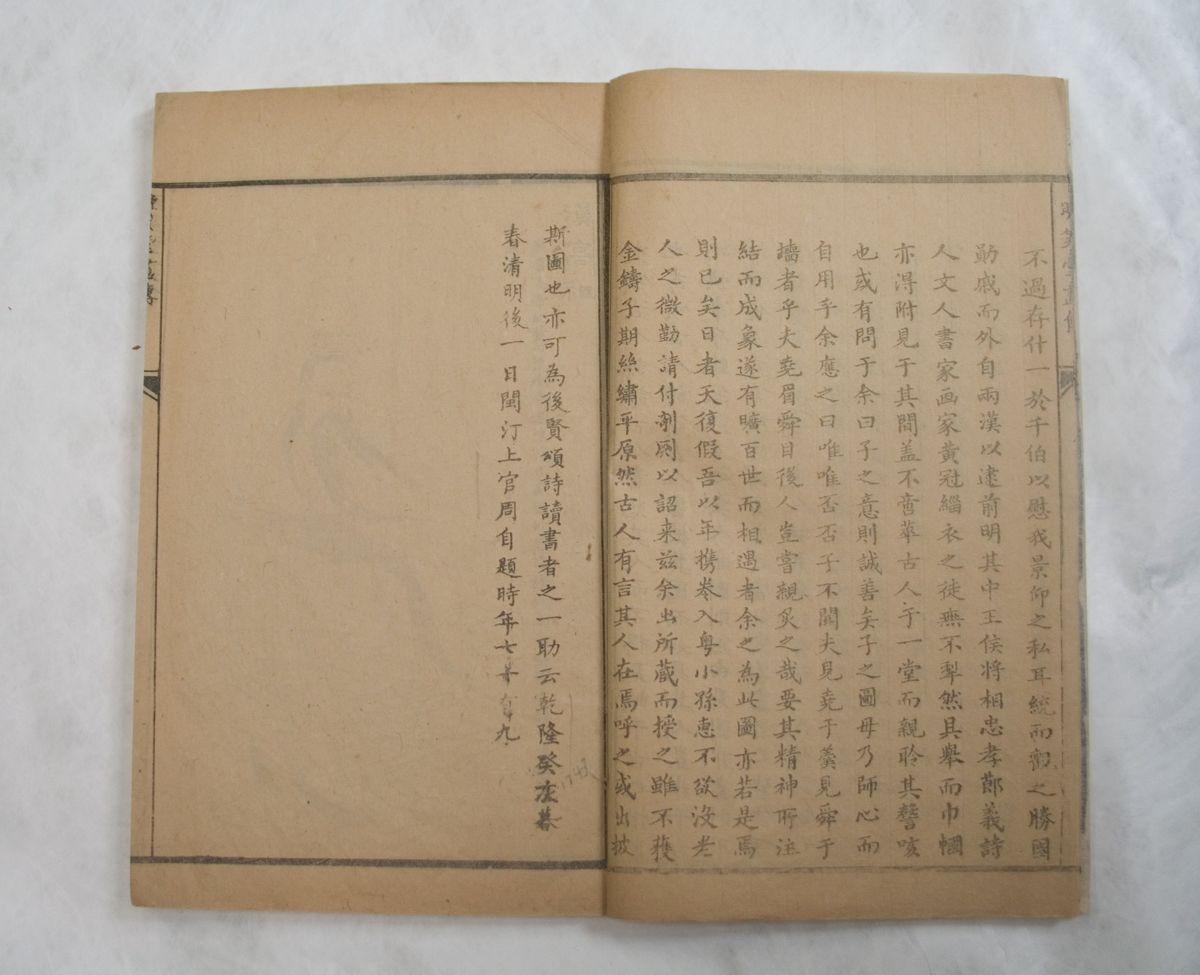 不過存什一於千伯以慰我景仰之私耳統而觀之勝國
勛戚而外自兩漢以逮前明其中王侯將相忠孝節義詩
人文人書家画家黄冠緇衣之徒無不犁然具舉而巾幗
亦得附見于其間盖不啻萃古人于一堂而親聆其謦咳
也或有問于余曰子之意則誠善矣子之圖毋乃師心而
自用乎余應之曰唯唯否否子不聞夫見堯于羹見舜于
墻者乎夫堯眉舜目後人豈嘗親炙之哉要其精神所注
結而成象遂有曠百世而相遇者余之為此圖亦若是焉
則已矣日者天復假吾以年携眷入粤小孫惠不欲没老
人之微勤請付剞劂以詔来兹余出所蔵而授之雖不獲
金鑄子期絲繡平原然古人有言其人在焉呼之或出披
斯圖也亦可為後賢頌詩讀書者之一助云乾隆癸亥暮
春清明後一日閩汀上官周自題時年七十有九